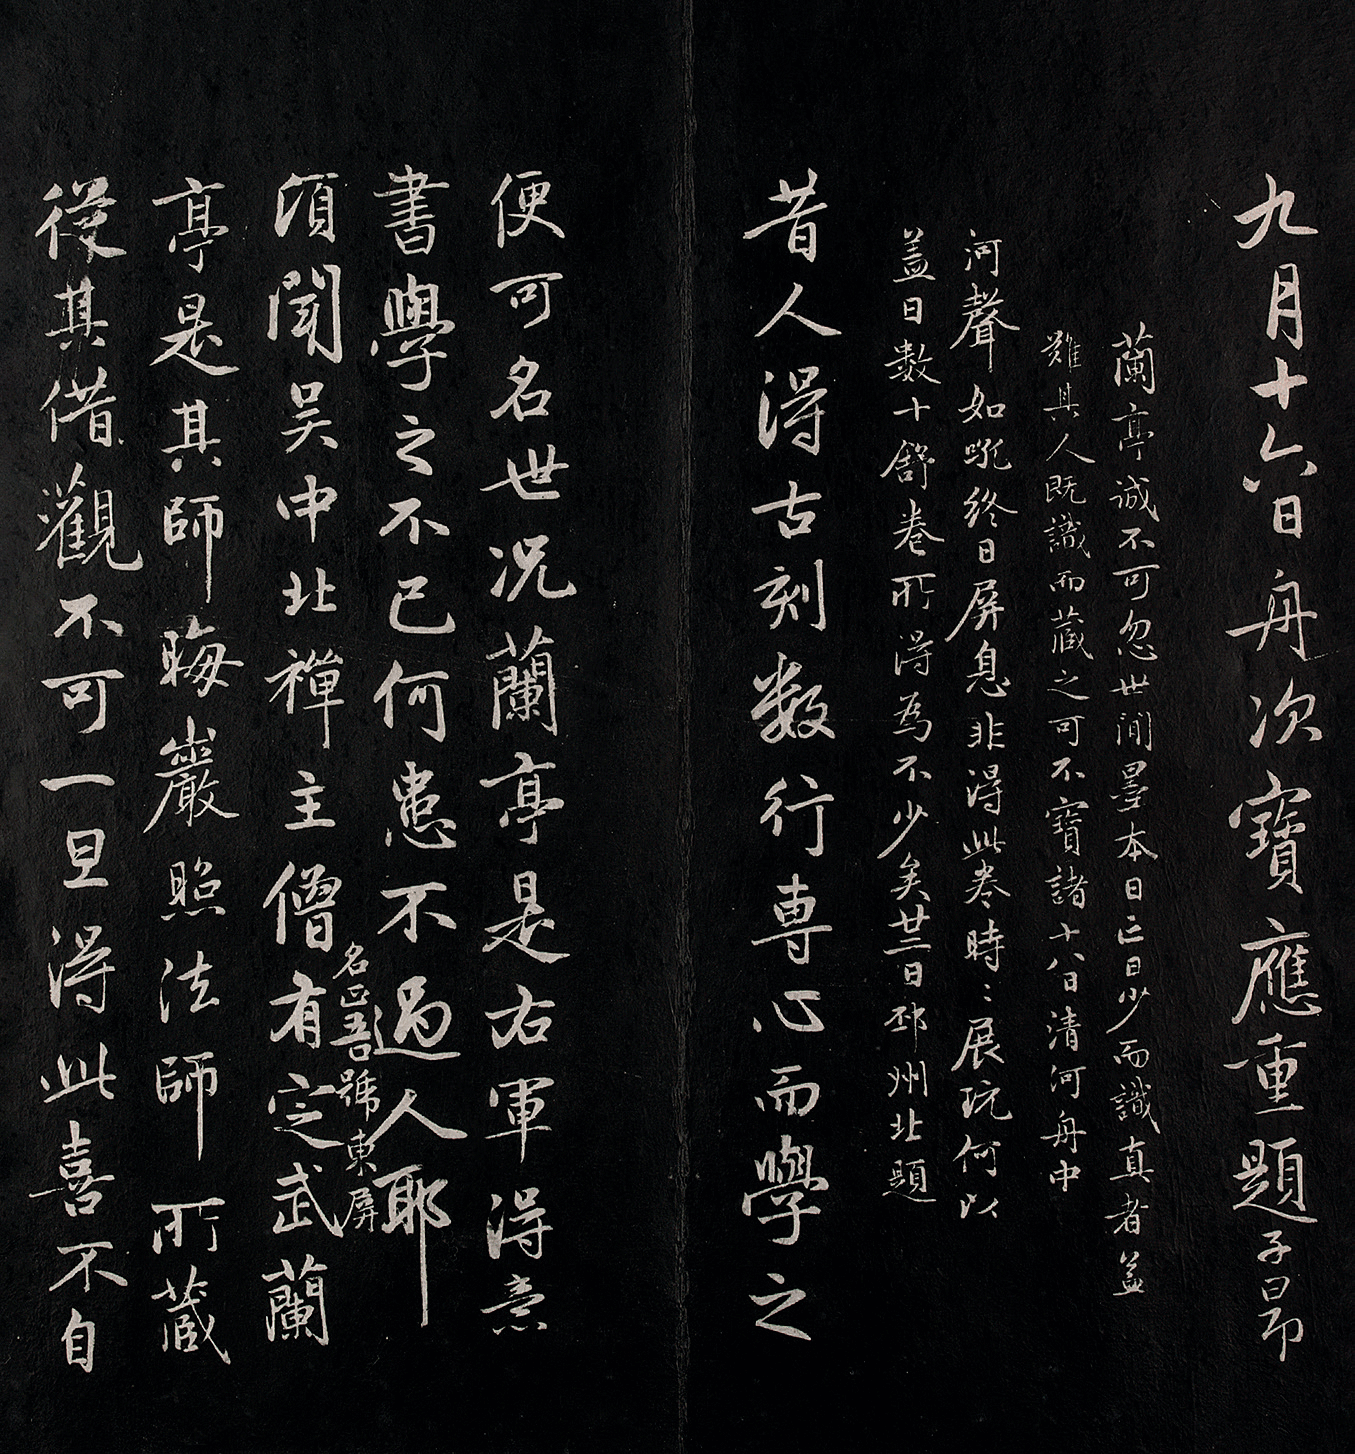 九月十六日舟次寶應重題子昂
蘭亭誠不可忽世間墨本日亡日少而識真者益
難其人既識而藏之可不寶諸十八日清河舟中
河聲如吼終日屏息非得此卷時〻展玩何以
蓋日數十舒卷所得為不少矣廿二日邳州北題
昔人得古刻数行専心而學之
便可名世况蘭亭是右軍得意
書學之不已何患不過人耶
頃聞吴中北禪主僧有定武蘭
名正吾號東屏
亭是其師晦巖照法師所蔵
從其借觀不可一旦得此喜不自